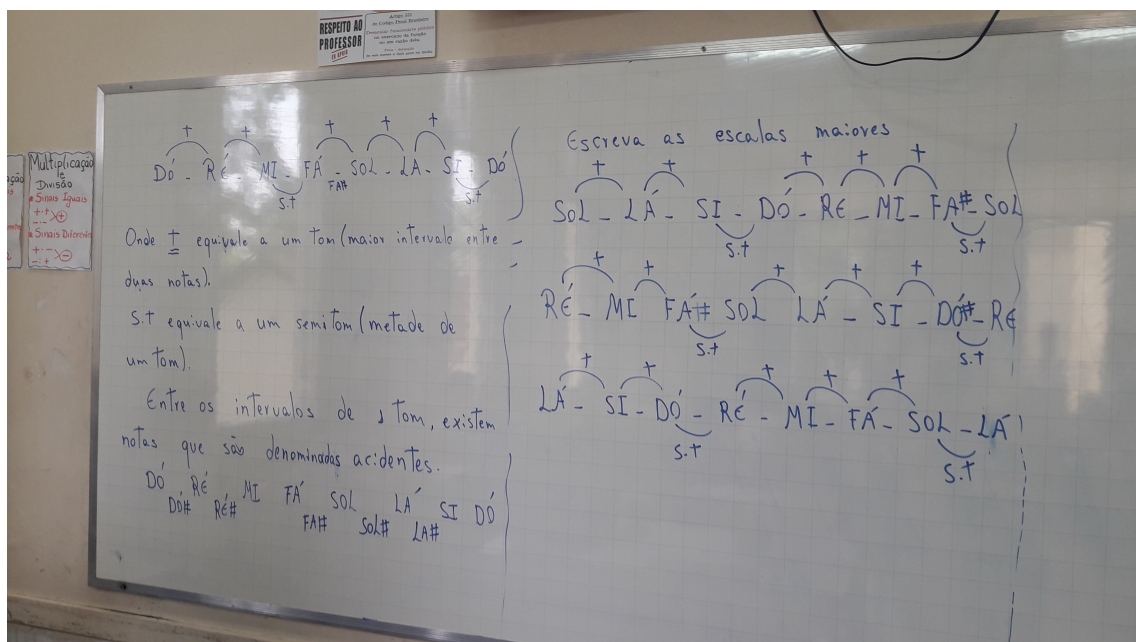 RESPEITO AO
PROFESSOR
Multiplicação
e
Divisão
Sinais Iguais
+·+
-·-
+
Sinais Diferen
+·-
-·+
-
t t t t t
DÓ - RÉ - MI - FÁ - SOL - LA - SI - DÓ
FA#
s.t s.t
Onde t equivale a um tom (maior intervalo entre
duas notas).
s.t equivale a um semitom (metade de
um tom).
Entre os intervalos de 1 tom, existem
notas que são denominadas acidentes.
DÓ RÉ MI FÁ SOL LÁ SI DÓ
DÓ# RÉ# FA# SOL# LA#
Escreva as escalas maiores
t t t t t
SOL - LÁ - SI - DÓ - RÉ - MI - FA# - SOL
s.t s.t
t t t t t
RÉ - MI FÁ# SOL LÁ - SI - DÓ# - RÉ
s.t s.t
t t t t t
LÁ - SI - DÓ - RÉ - MI - FÁ - SOL - LÁ
s.t s.t